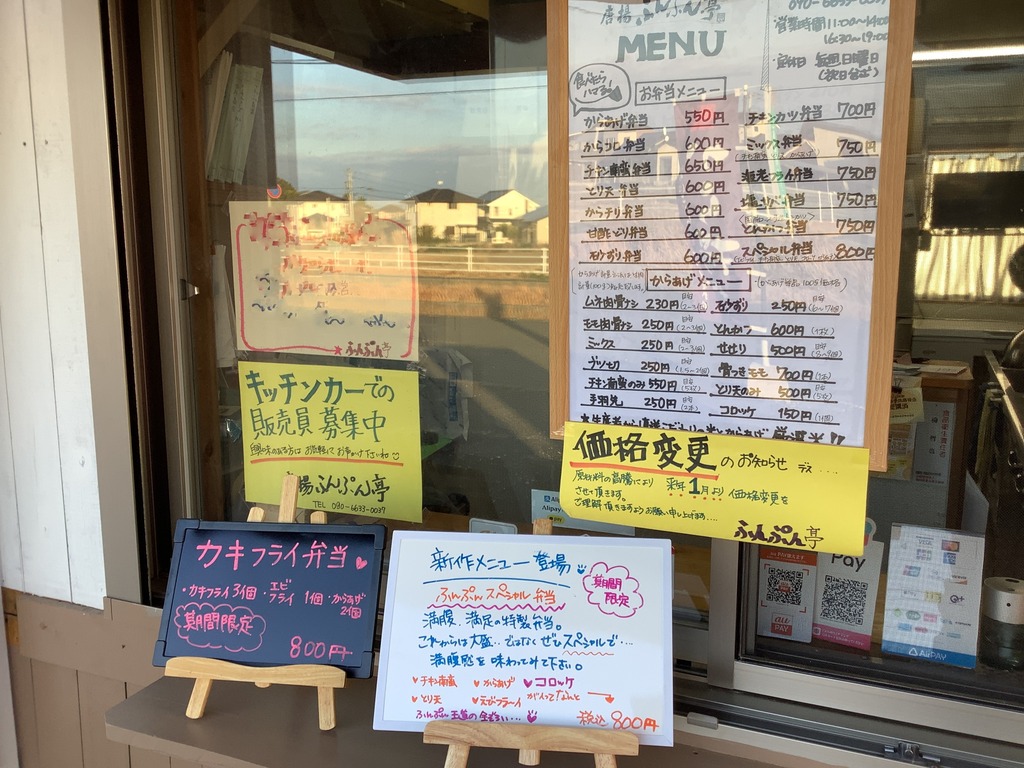 唐揚ふんぷん亭
MENU
営業時間 11:00~14:00
16:30~19:00
定休日 毎週日曜日
お弁当メニュー
からあげ弁当 550円
チキン南蛮弁当 650円
とり天 弁当 600円
からチリ弁当 600円
甘酢どり弁当 600円
砂ずり弁当 600円
チキンカツ弁当 700円
ミックス弁当 750円
海老フライ弁当 750円
塩さば弁当 750円
とんかつ弁当 750円
スペシャル弁当 800円
からあげメニュー
ムネ肉骨ナシ 230円
モモ肉骨ナシ 250円
ミックス 250円
ブツ切 250円
チキン南蛮のみ 550円
手羽先 250円
砂ずり 250円
とんかつ 600円
せせり 500円
骨つきモモ 700円
とり天のみ 500円
コロッケ 150円
ふんぷん亭
キッチンカーでの
販売員募集中
興味のある方は お気軽にお声かけ下さいね
唐揚ふんぷん亭
TEL 090-6633-0039
価格変更のお知らせ デス....
原材料の高騰により 来年1月より価格変更を
させて頂きます。
ご理解頂きますようお願い申し上げます....
ふんぷん亭
カキフライ弁当
・カキフライ3個・エビフライ1個・からあげ2個
期間限定
800円
新作メニュー登場
期間限定
ふんぷんスペシャル弁当
満腹、満足の特製弁当。
これからは大盛..ではなくぜひスペシャルで...
満腹感を味わってみて下さい。
チキン南蛮 からあげ コロッケ
とり天 えびフライ が入ってなんと
税込800円
Alipay
au PAY
Pay
AirPAY